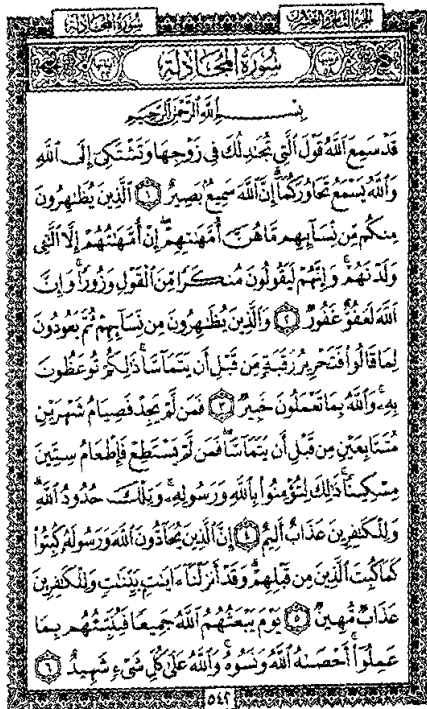 الجزء الثامن والعشرون
سُورَةُ المُجَادلَة
سُورَةُ المُجَادلَة
بِسْمِ ٱللَّهِ ٱلرَّحْمَٰنِ ٱلرَّحِيمِ
قَدْ سَمِعَ ٱللَّهُ قَوْلَ ٱلَّتِى تُجَٰدِلُكَ فِى زَوْجِهَا وَتَشْتَكِىٓ إِلَى ٱللَّهِ
وَٱللَّهُ يَسْمَعُ تَحَاوُرَكُمَآ إِنَّ ٱللَّهَ سَمِيعٌۢ بَصِيرٌ ١ ٱلَّذِينَ يُظَٰهِرُونَ
مِنكُم مِّن نِّسَآئِهِم مَّا هُنَّ أُمَّهَٰتِهِمْ إِنْ أُمَّهَٰتُهُمْ إِلَّا ٱلَّٰٓـِٔى
وَلَدْنَهُمْ وَإِنَّهُمْ لَيَقُولُونَ مُنكَرًا مِّنَ ٱلْقَوْلِ وَزُورًا وَإِنَّ
ٱللَّهَ لَعَفُوٌّ غَفُورٌ ٢ وَٱلَّذِينَ يُظَٰهِرُونَ مِن نِّسَآئِهِمْ ثُمَّ يَعُودُونَ
لِمَا قَالُوا۟ فَتَحْرِيرُ رَقَبَةٍ مِّن قَبْلِ أَن يَتَمَآسَّا ذَٰلِكُمْ تُوعَظُونَ
بِهِۦ وَٱللَّهُ بِمَا تَعْمَلُونَ خَبِيرٌ ٣ فَمَن لَّمْ يَجِدْ فَصِيَامُ شَهْرَيْنِ
مُتَتَابِعَيْنِ مِن قَبْلِ أَن يَتَمَآسَّا فَمَن لَّمْ يَسْتَطِعْ فَإِطْعَامُ سِتِّينَ
مِسْكِينًا ذَٰلِكَ لِتُؤْمِنُوا۟ بِٱللَّهِ وَرَسُولِهِۦ وَتِلْكَ حُدُودُ ٱللَّهِ
وَلِلْكَٰفِرِينَ عَذَابٌ أَلِيمٌ ٤ إِنَّ ٱلَّذِينَ يُحَآدُّونَ ٱللَّهَ وَرَسُولَهُۥ كُبِتُوا۟
كَمَا كُبِتَ ٱلَّذِينَ مِن قَبْلِهِمْ وَقَدْ أَنزَلْنَآ ءَايَٰتٍۭ بَيِّنَٰتٍ وَلِلْكَٰفِرِينَ
عَذَابٌ مُّهِينٌ ٥ يَوْمَ يَبْعَثُهُمُ ٱللَّهُ جَمِيعًا فَيُنَبِّئُهُم بِمَا
عَمِلُوٓا۟ أَحْصَىٰهُ ٱللَّهُ وَنَسُوهُ وَٱللَّهُ عَلَىٰ كُلِّ شَىْءٍ شَهِيدٌ ٦
٥٤٢